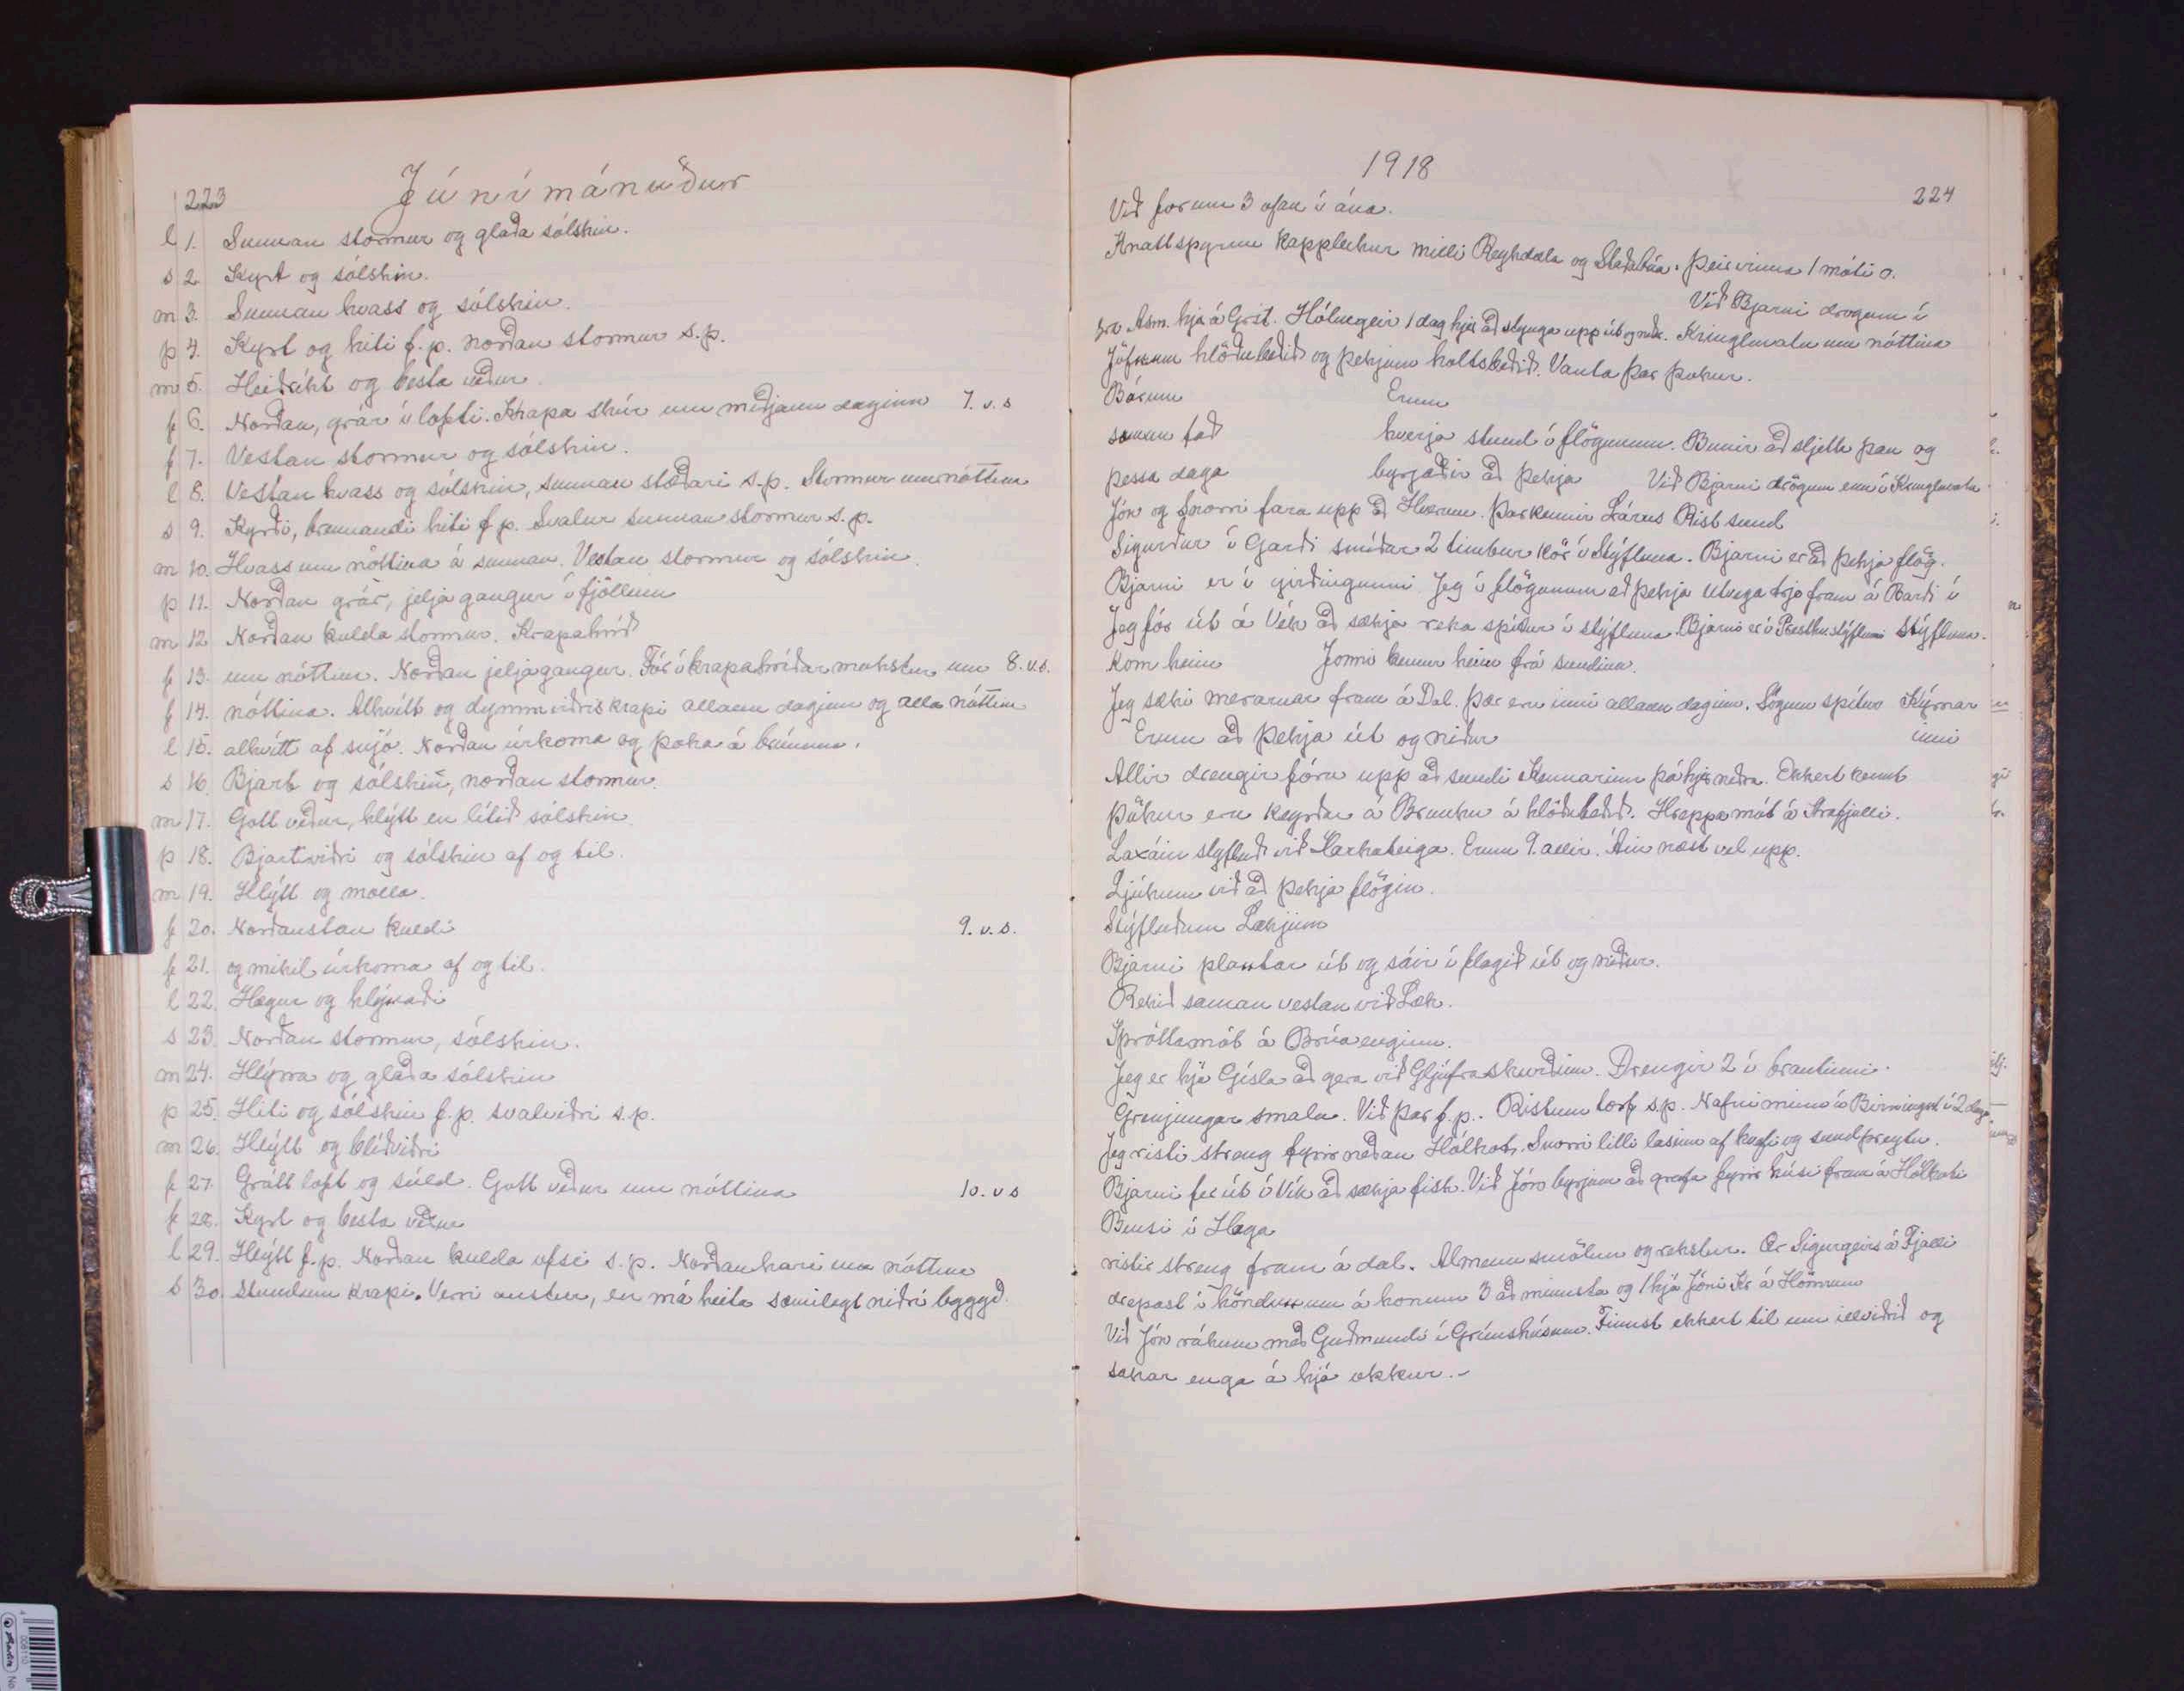 223 Júnímánuður
l 1. Sunnan stormur og glaða sólskin.
s 2. Kyrt og sólskin.
m 3. Sunnan hvass og sólskin.
þ 4. Kyrt og hiti f.p. norðan stormur s.p.
m 5. Heiðríkt og besta veður
f 6. Norðan, grár í lofti. Krapa skúr um miðjann daginn 7. v.s
f 7. Vestan stormur og sólskin.
l 8. Vestan hvass og sólskin, sunnan stæðari s.p. Stormur um nóttina
s 9. Kyrð, brennandi hiti f.p. Svalur sunnan stormur s.p.
m 10. Hvass um nóttina á sunnan. Vestan stormur og sólskin.
þ 11. Norðan grár, jeljagangur í fjöllum
m 12 Norðan kulda stormur. Krapahríð
f 13. um nóttina. Norðan jeljagangur. Fór í krapahríðar um 8. v.s.
f 14. nóttina. Alhvítt og dymmviðris krapi allann daginn og alla nóttina
l 15. alhvítt af snjó. Norðan úrkoma og þoka á brúnum.
s 16. Bjart og sólskin, norðan stormur.
m 17. Gott veður, hlýtt en lítið sólskin
þ 18. Bjartviðri og sólskin af og til.
m 19. Hlýtt og molla.
f 20. Norðaustan kuldi 9. v.s.
f 21. og mikil úrkoma af og til.
l 22. Hægur og hlýnaði
s 23. Norðan stormur, sólskin.
m 24. Hlýrra og glaða sólskin
þ 25. Hiti og sólskin f.p. svalviðri s.p.
m 26. Hlýtt og blíðviðri
f 27. Grátt loft og súld. Gott veður um nóttina 10. v s
f 28. Kyrt og besta veður
l 29. Hlýtt f.p. Norðan kulda ofsi s.p. Norðan um nóttina
s 30. Stundum krapi. Verri austur, en má heita sæmilegt niðrí byggð.
1918
224
Við forum 3 ofan í ána.
Knattspyrnu kappleikur milli Reykdæla og Staðabúa. Þeir vinna 1 móti 0.
Við Bjarni drogum í
Asm. hjá á Grst. Hólmgeir 1 dag hjer að stynga upp út og niður. Kringluvatn um nóttina
Jöfnum hlöðubeðið og þekjum holtsbeðið. Vanta þar þökur.
Bárum Erum
saman tað hverja stund í flögunum. Bunir að sljetta þau og
þessa daga byrjaðir að þekja Við Bjarni drögum enn í Kringluvatn.
Jón og Snorri fara upp að Hverum. Þar kennir Lárus Rist sund
Sigurður í Garði smíðar 2 timbur kör í Stýfluna. Bjarni er að þekja flög.
Bjarni er í girðingunni Jeg í flögunum að þekja útvega trje fram á Barð í
Jeg fór út á Vík að sækja reka spítur í stýfluna. Bjarni er í stýflunni Stýfluna.
kom heim Jonni kemur heim frá sundinu.
Jeg sæki merarnar fram á Dal. Þær eru inni allann daginn. Sögum spítur Kýrnar
Erum að þekja út og niður inni
Allir drengir fóru upp að sundi Kennarinn þá hjer neðra. Ekkert kent
Þökur eru keyrðar á Brunku á hlöðubeðið. Hreppamót á Hrafjalli.
Laxáin stýfluð við Markateiga. Erum 9. allir. Áin næst vel upp.
Ljúkum við að þekja flögin.
Stýfluðum Lækjinn
Bjarni plantar út og sáir í flagið út og niður.
Rekið saman vestan við Læk.
Íþróttamót á Brúaenginu.
Jeg er hjá Gísla að gera við Gljúfraskurðinn. Drengir 2 í brautinni.
Grenjungar smala. Við þar f.p. Ristum torf s.p. Nafni minn í í 2 daga
Jeg risti streng fyrir neðan Hólkot. Snorri litli lasinn af kvefi og sundþreytu.
Bjarni fer út í Vík að sækja fisk. Við Jón byrjum að grafa fyrir húsi fram á Hólkoti
Bensi í Haga
ristir streng fram á dal. Almenn smölun og rekstur. Ær Sigurgeirs á Fjalli
drepast í höndunum á honum 3 að minnsta og 1 hjá Jóni Kr á Hömrum
Við Jón rákum með Guðmundi í Grímshúsum. Finnst ekkert til um illviðrið og
sakar enga á hjá okkur.-